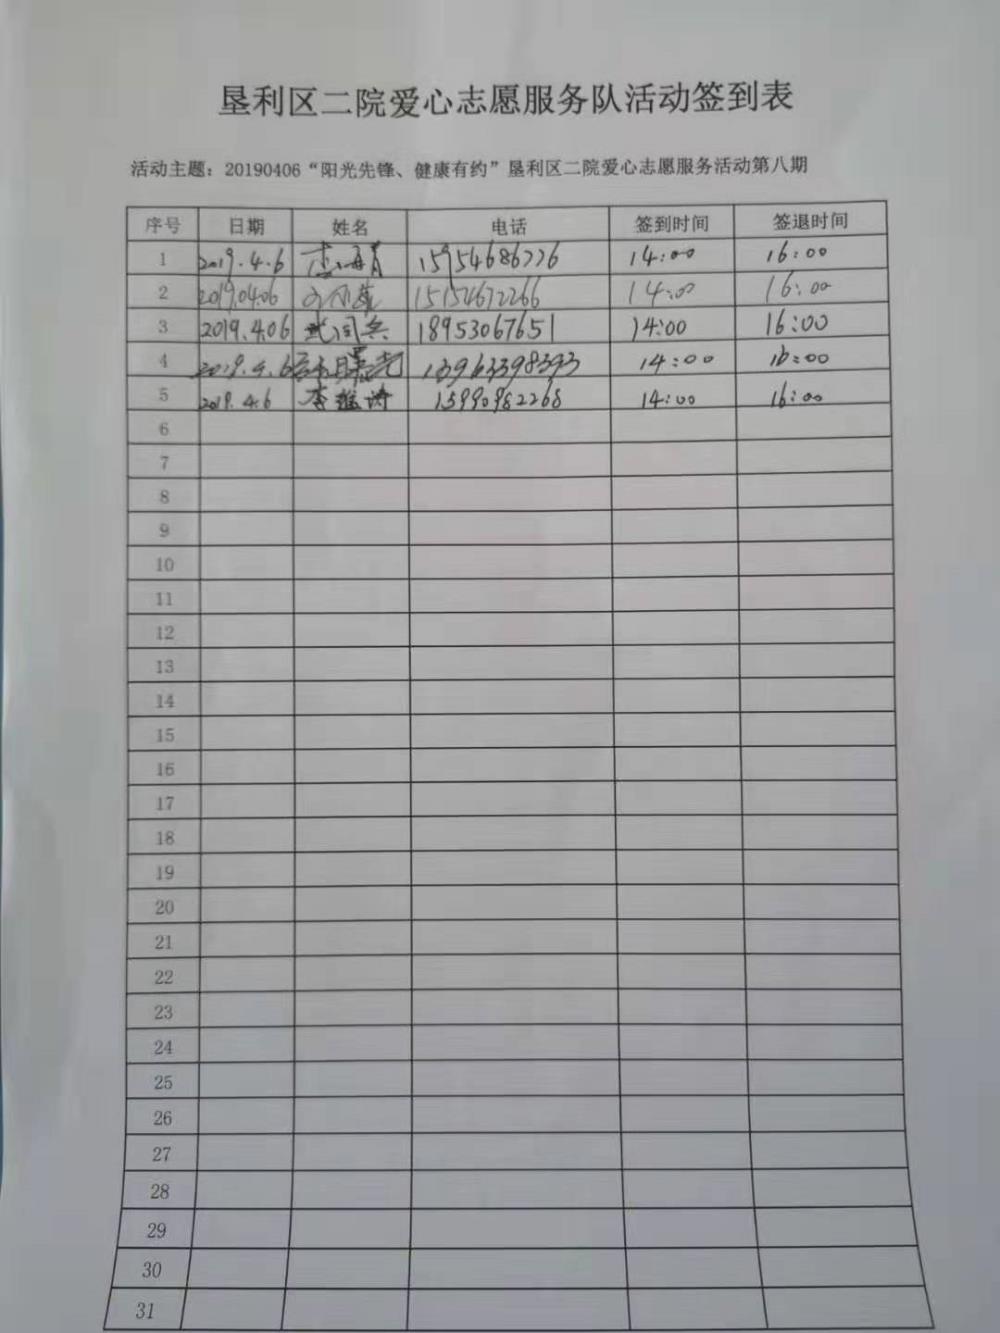 垦利区二院爱心志愿服务队活动签到表
活动主题：20190406“阳光先锋、健康有约”垦利区二院爱心志愿服务活动第八期
序号 日期 姓名 电话 签到时间 签退时间
1 2019.4.6 15954686776 14:00 16:00
2 2019.04.06 15154672266 14:00 16:00
3 2019.4.06 18953067651 14:00 16:00
4 2019.4.6 13963398393 14:00 16:00
5 2019.4.6 李 15990982268 14:00 16:00
6
7
8
9
10
11
12
13
14
15
16
17
18
19
20
21
22
23
24
25
26
27
28
29
30
31